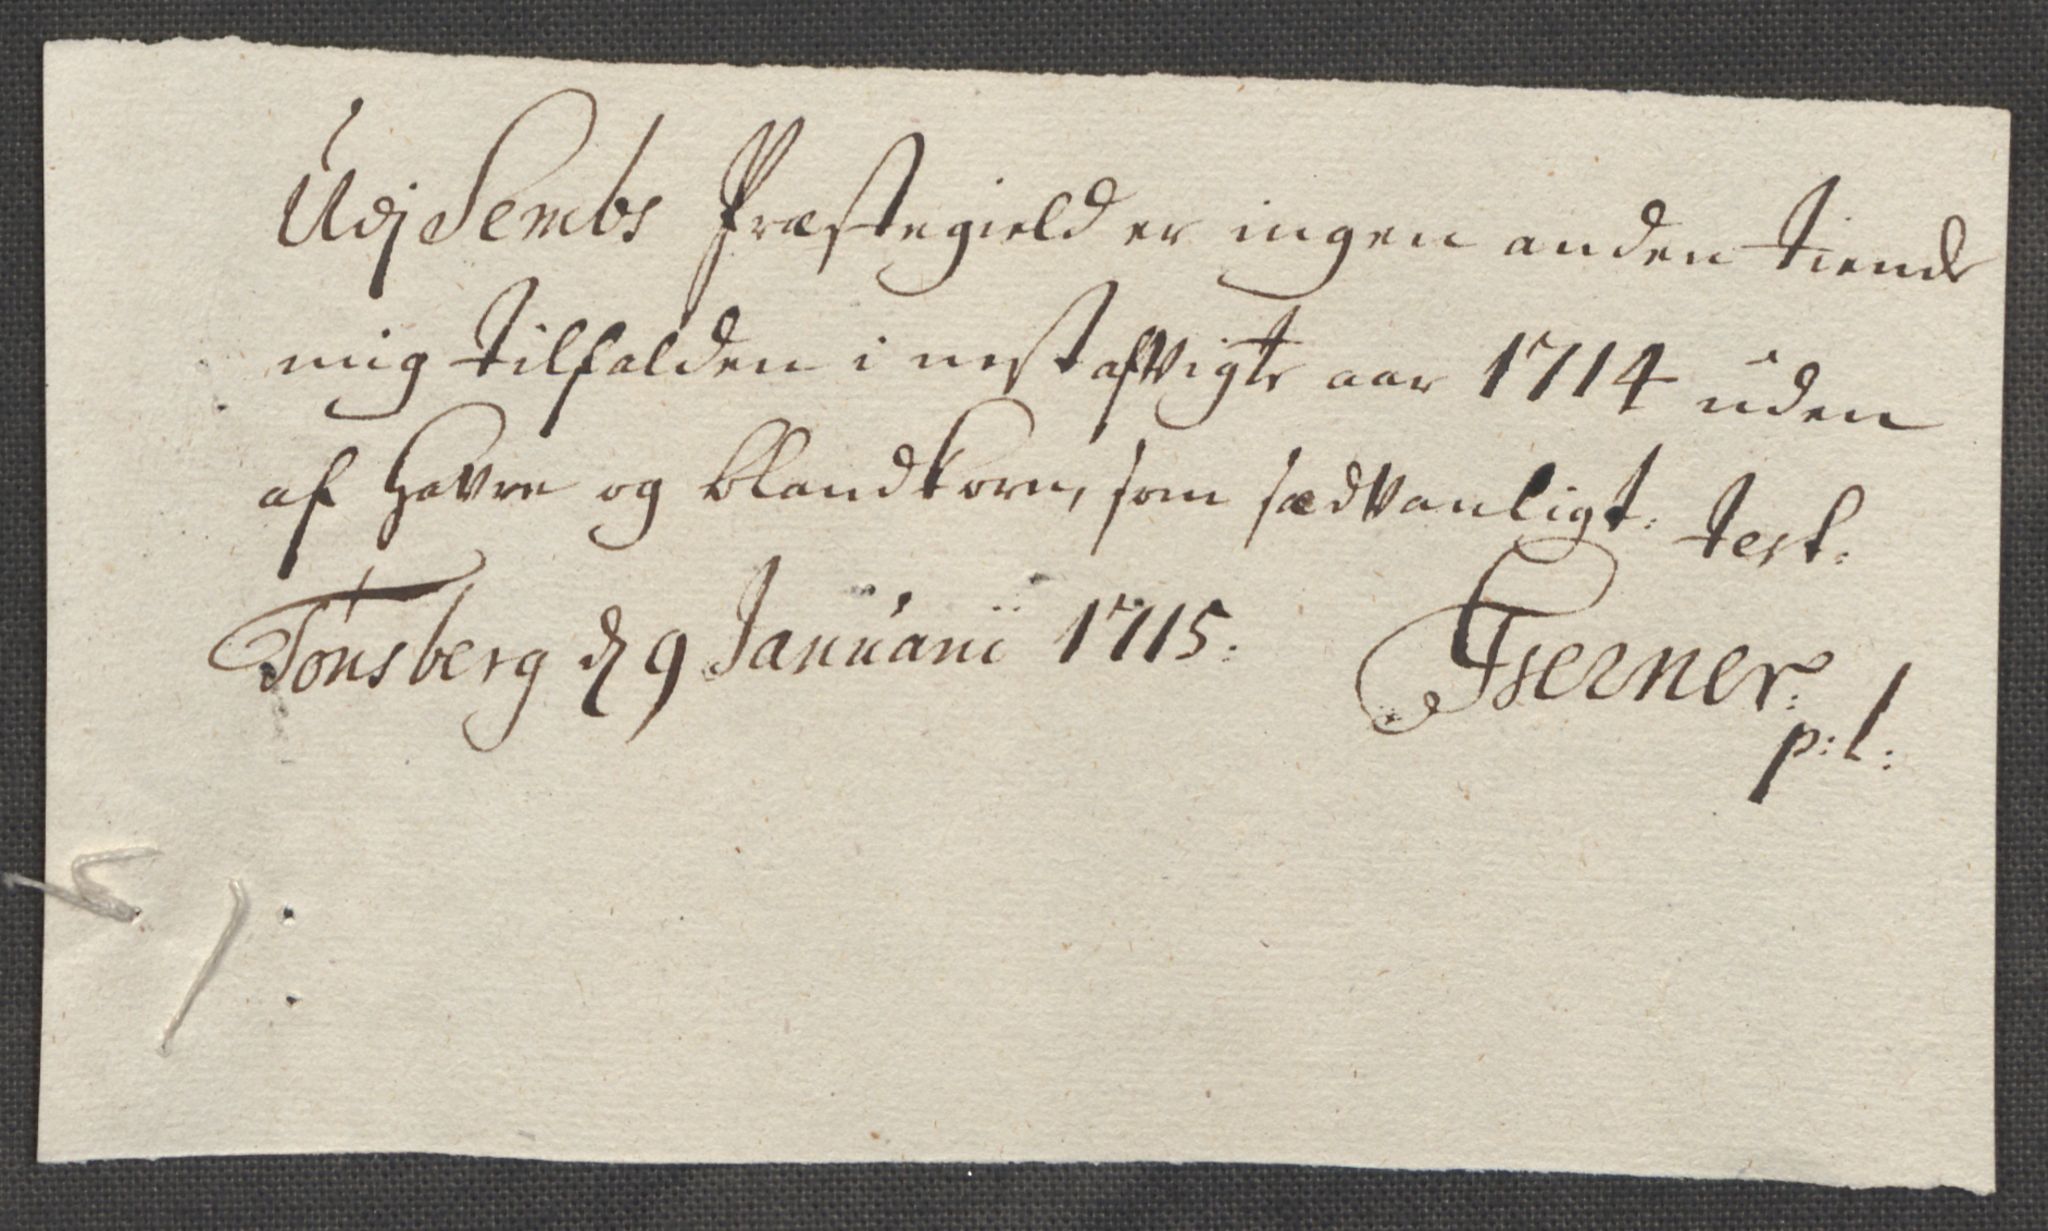 Udj Sembs Præstegield er ingen anden tiende
mig tilfalden i nest afvigte aar 1714 uden
af Havre og blandkorn, som sædvanligt. test:
Tønsberg d 9 Januarii 1715.
p: l: